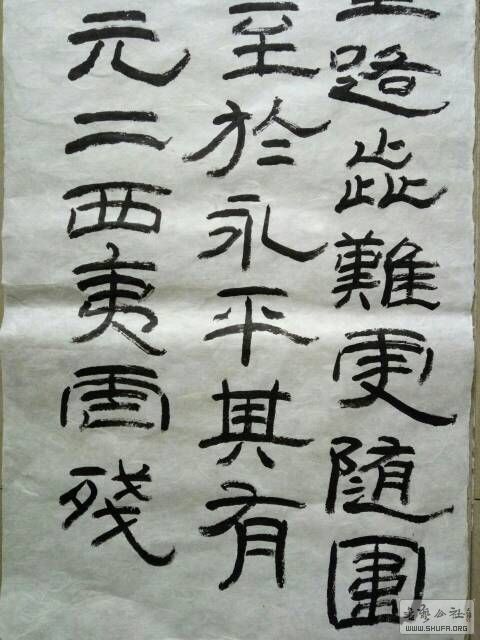 路歮難更随圍
至於永平其有
元二西夷虐殘
书艺公社
WWW.SHUFA.ORG